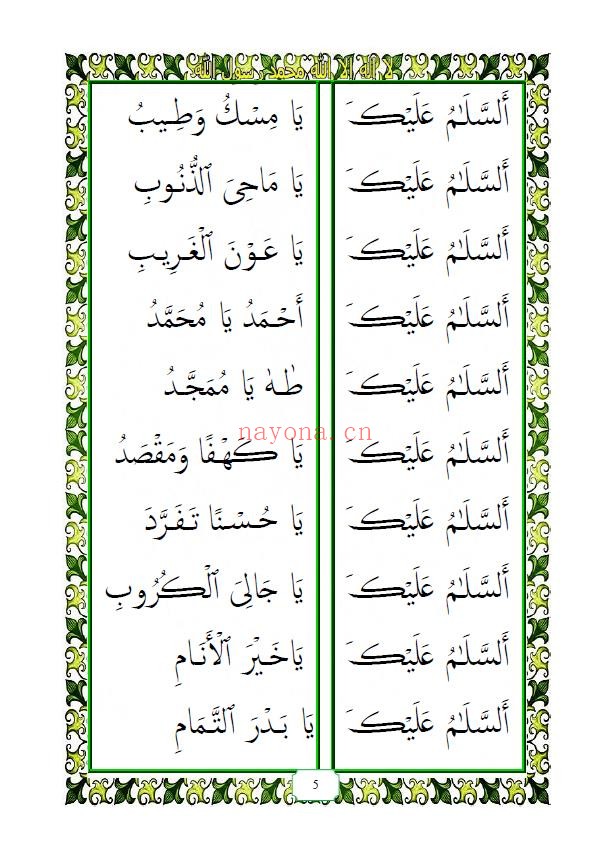 لا اله الا الله محمد رسول الله
أَلسَّلَامُ عَلَيْكَ يَا مِسْكُ وَطِيبُ
أَلسَّلَامُ عَلَيْكَ يَا مَاحِيَ ٱلذُّنُوبِ
أَلسَّلَامُ عَلَيْكَ يَا عَوْنَ ٱلْغَرِيبِ
أَلسَّلَامُ عَلَيْكَ أَحْمَدُ يَا مُحَمَّدُ
أَلسَّلَامُ عَلَيْكَ طٰهٰ يَا مُمَجَّدُ
nayona.cn
أَلسَّلَامُ عَلَيْكَ يَا كَهْفًا وَمَقْصَدُ
أَلسَّلَامُ عَلَيْكَ يَا حُسْنًا تَفَرَّدَ
أَلسَّلَامُ عَلَيْكَ يَا جَالِيَ ٱلْكُرُوبِ
أَلسَّلَامُ عَلَيْكَ يَاخَيْرَ ٱلْأَنَامِ
أَلسَّلَامُ عَلَيْكَ يَا بَدْرَ ٱلتَّمَامِ
5